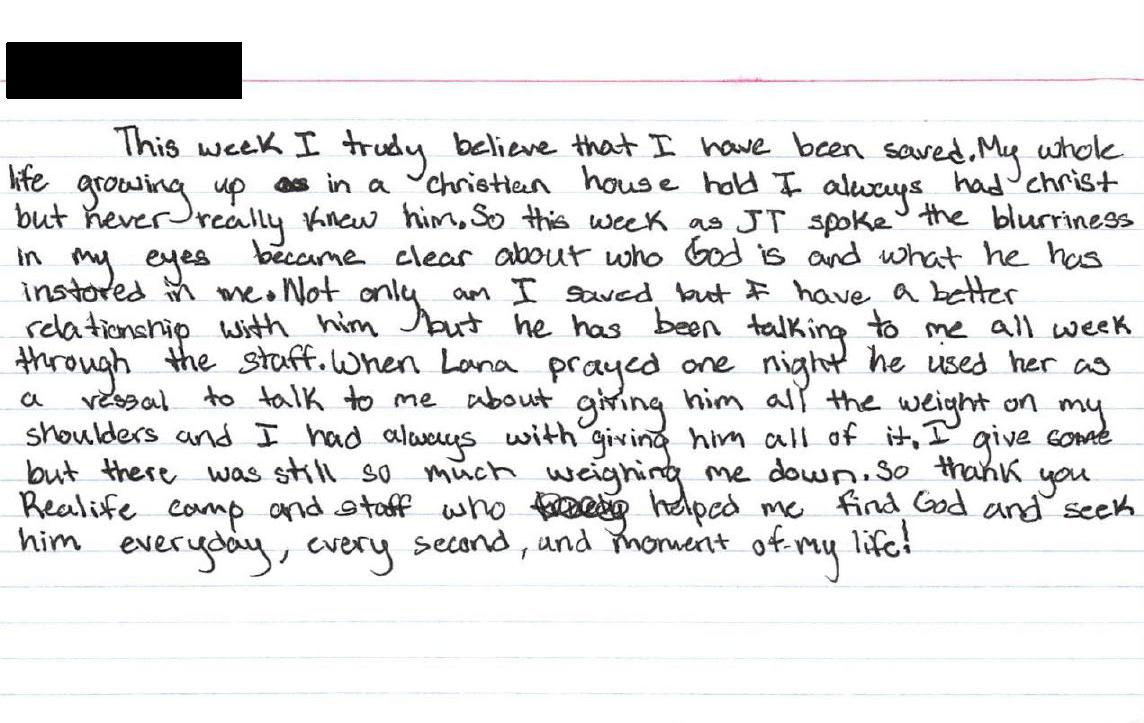 This week I trudy believe that I have been saved. My whole
life growing up in a christian house hold I always had christ
but never really knew him. So this week as JT spoke the blurriness
in my eyes became clear about who God is and what he has
instored in me. Not only am I saved but I have a better
relationship with him but he has been talking to me all week
through the staff. When Lana prayed one night he used her as
a vessal to talk to me about giving him all the weight on my
shoulders and I had always with giving him all of it. I give some
but there was still so much weighing me down. So thank you
Realife camp and staff who helped me find God and seek
him everyday, every second, and moment of my life!